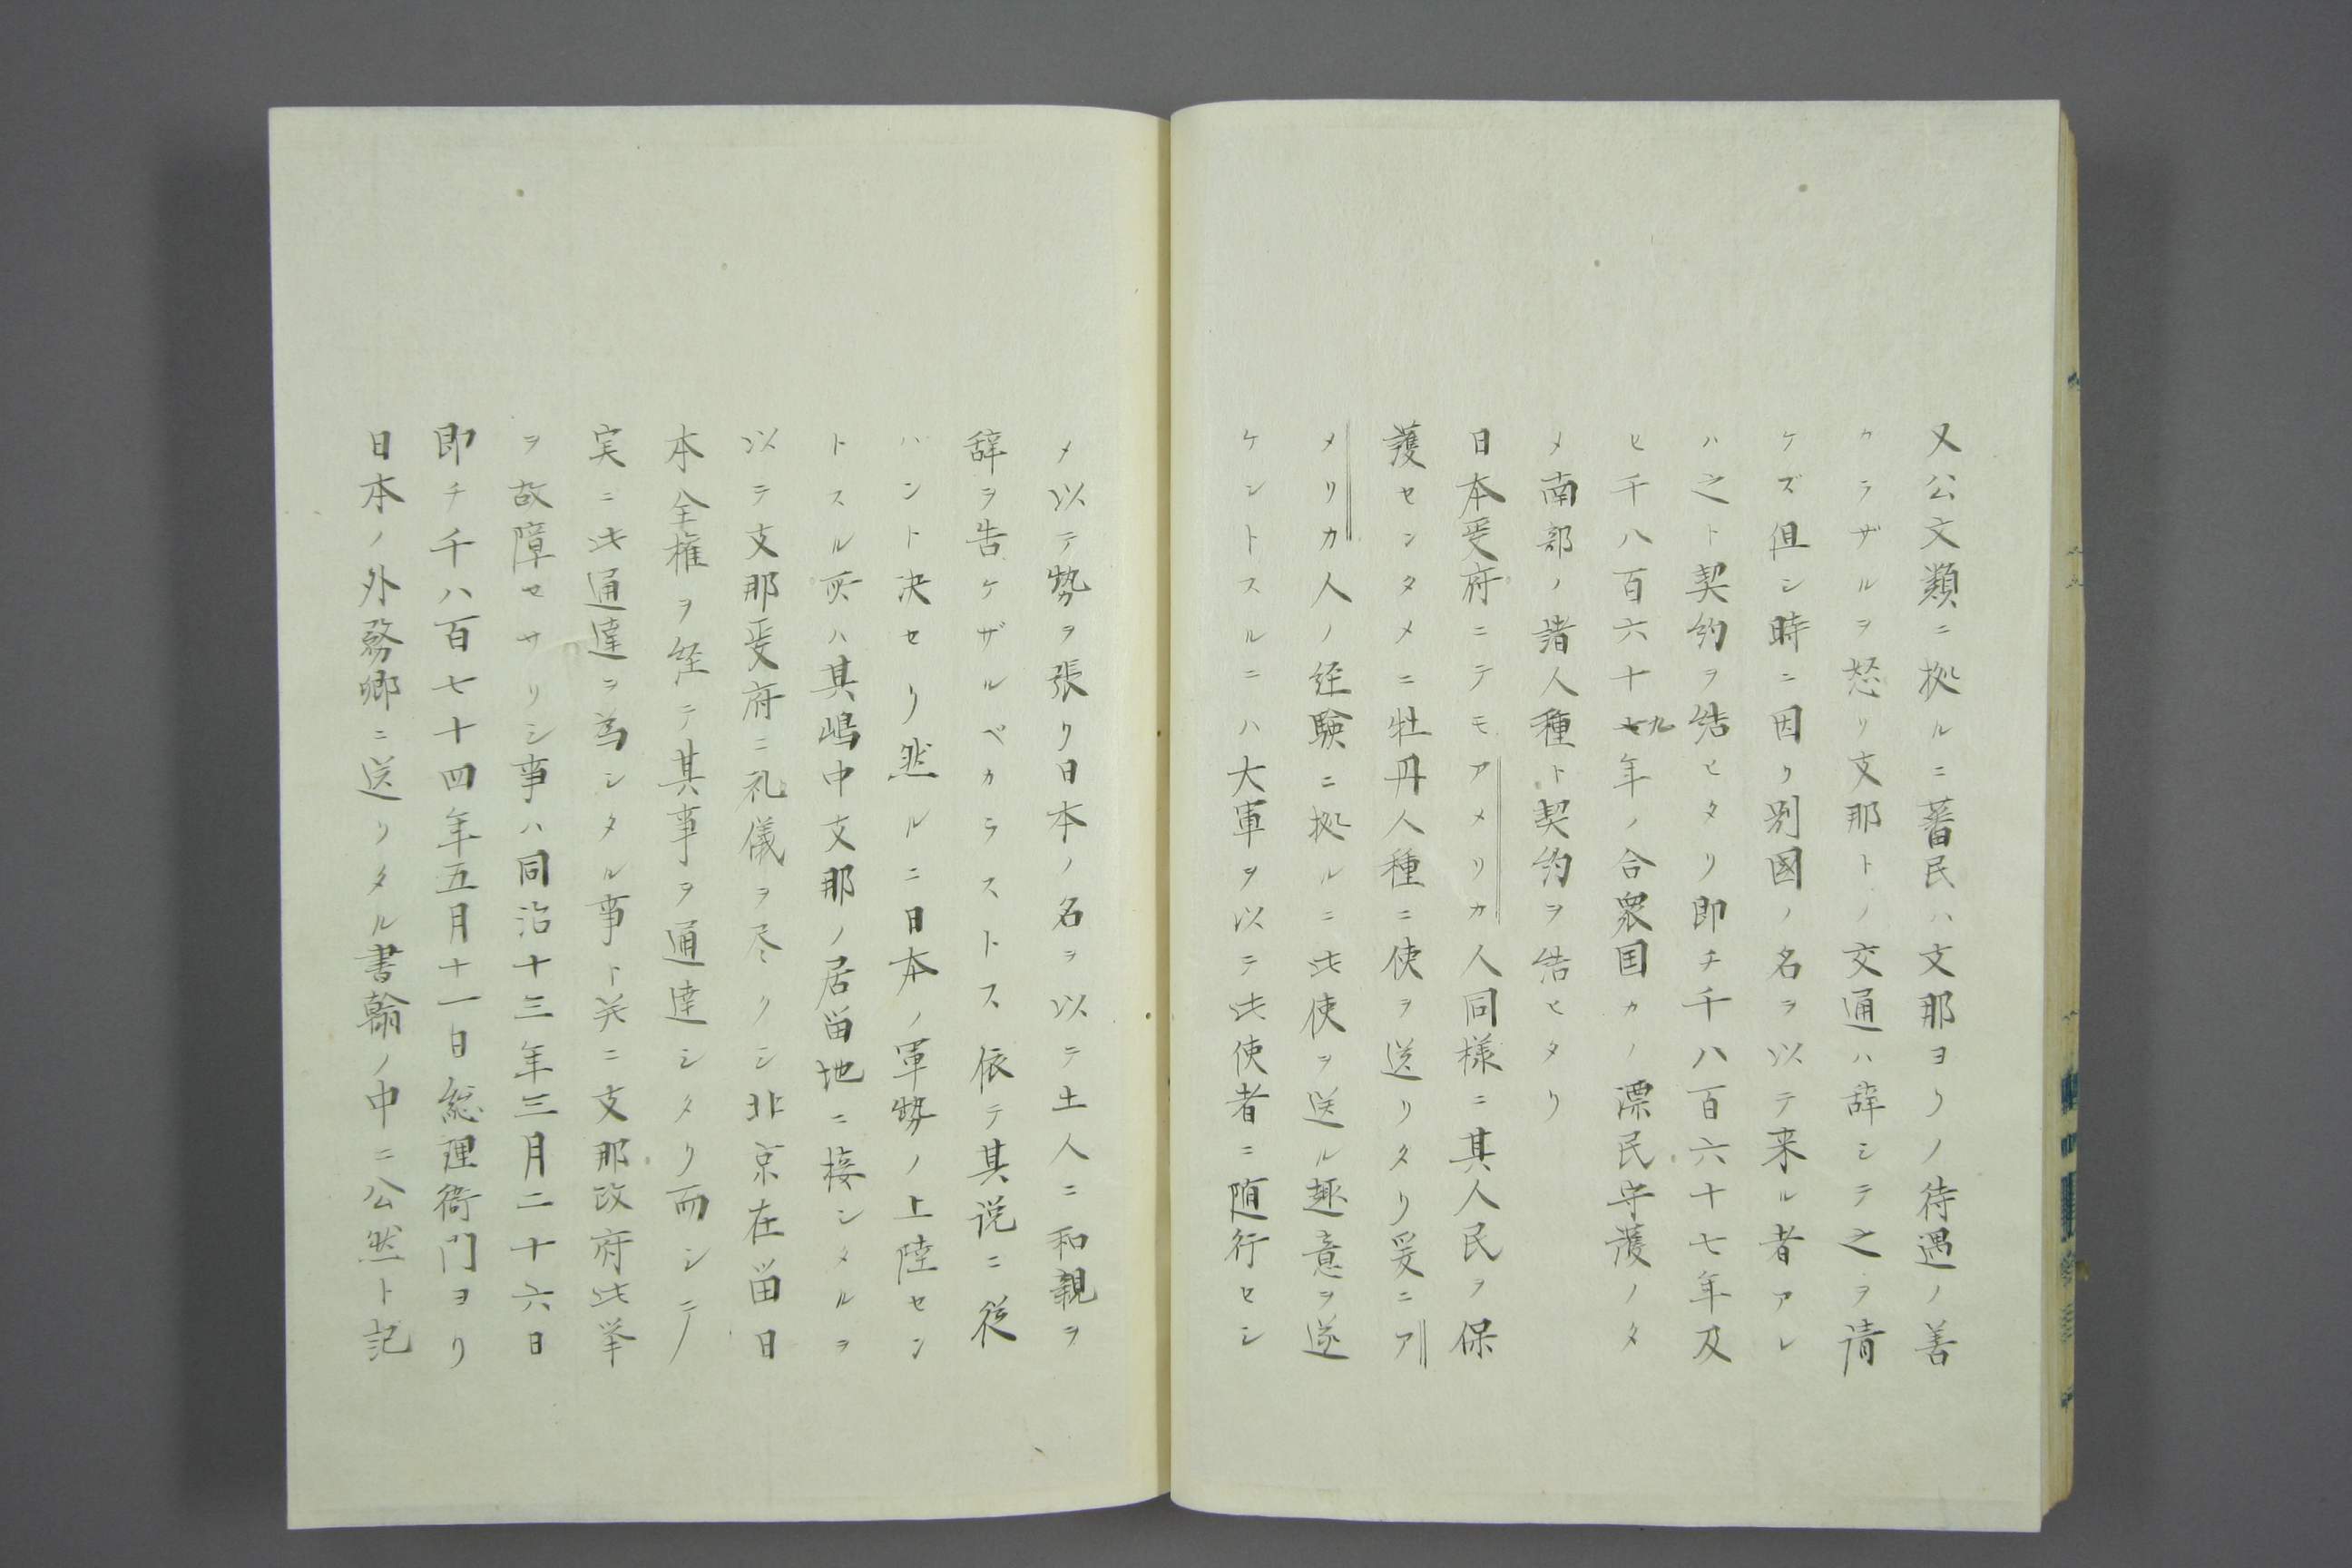 又公文類ニ拠ルニ蕃民ハ支那ヨリノ待遇ノ善
カラザルヲ怒リ支那トノ交通ハ辞シテ之ヲ請
ケズ但シ時ニ因リ別國ノ名ヲ以テ来ル者アレ
ハ之ト契約ヲ結ヒタリ即チ千八百六十七年及
ヒ千八百六十九年ノ合衆国カノ漂民守護ノタ
メ南部ノ諸人種ト契約ヲ結ヒタリ
日本政府ニテモアメリカ人同様ニ其人民ヲ保
護センタメニ牡丹人種ニ使ヲ送リタリ爰ニア
メリカ人ノ経験ニ拠ルニ此使ヲ送ル趣意ヲ遂
ケントスルニハ大軍ヲ以テ此使者ニ随行セシ
メ以テ勢ヲ張リ日本ノ名ヲ以テ土人ニ和親ヲ
辞ヲ告ケザルベカラストス依テ其説ニ従
ハント決セリ然ルニ日本ノ軍勢ノ上陸セン
トスル所ハ其嶋中支那ノ居留地ニ接シタルヲ
以テ支那政府ニ礼儀ヲ尽クシ北京在留日
本全権ヲ経テ其事ヲ通達シタリ而シテ
実ニ此通達ヲ為シタル事ト并ニ支那政府此挙
ヲ故障セサリシ事ハ同治十三年三月二十六日
即チ千八百七十四年五月十一日総理衙門ヨリ
日本ノ外務卿ニ送リタル書翰ノ中ニ公然ト記